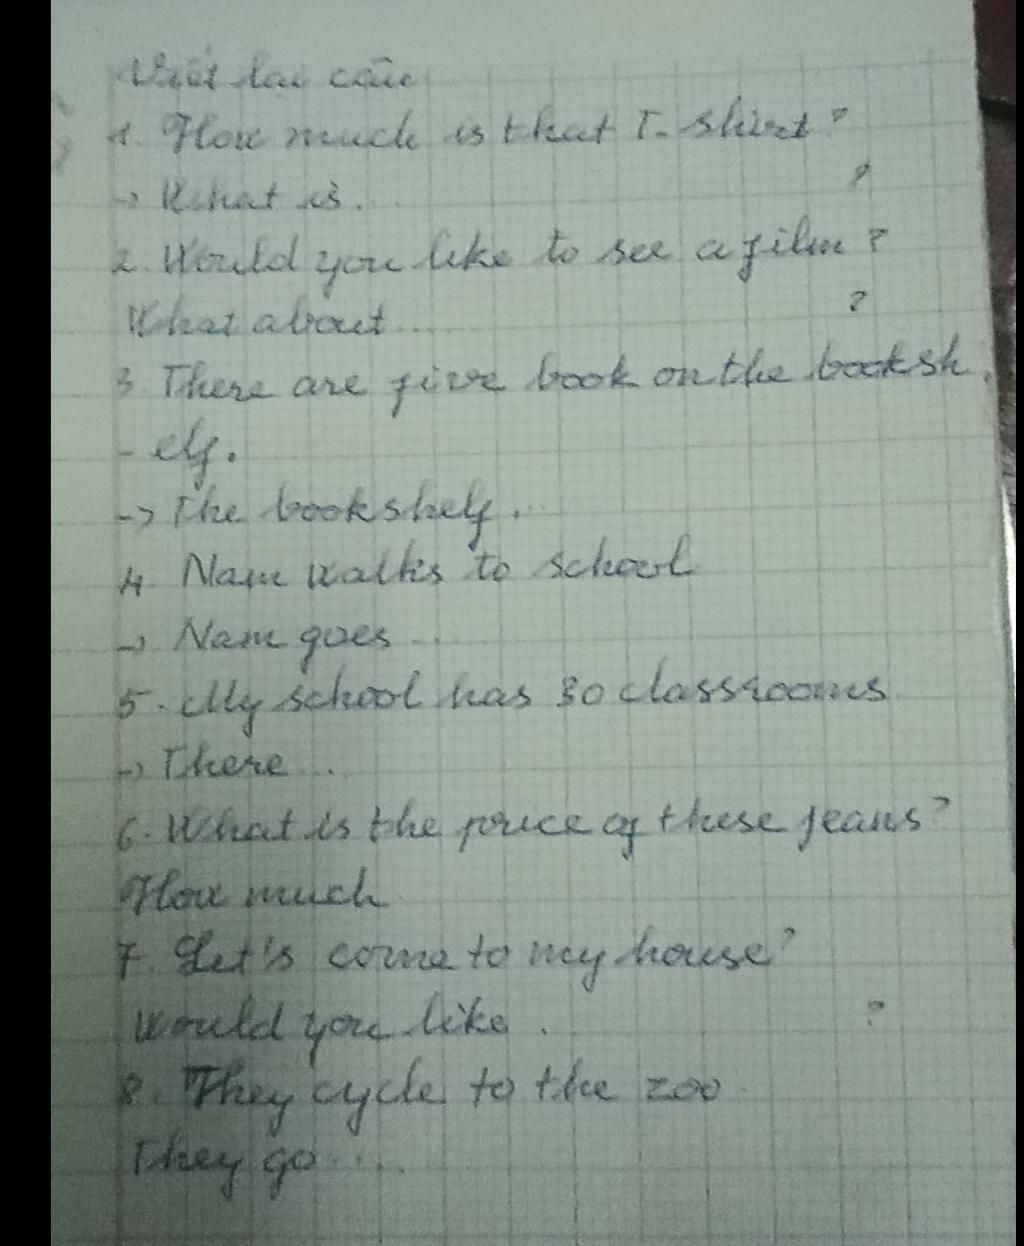 Viết lại câu
1. How much is that T-shirt?
-> What is... ?
2. Would you like to see a film?
What about... ?
3. There are five book on the booksh
- elf.
-> The bookshelf...
4. Nam walks to school
-> Nam goes...
5. My school has 30 classrooms
-> There...
6. What is the price of these jeans?
How much
7. Let's come to my house?
Would you like. ?
8. They cycle to the zoo.
They go....